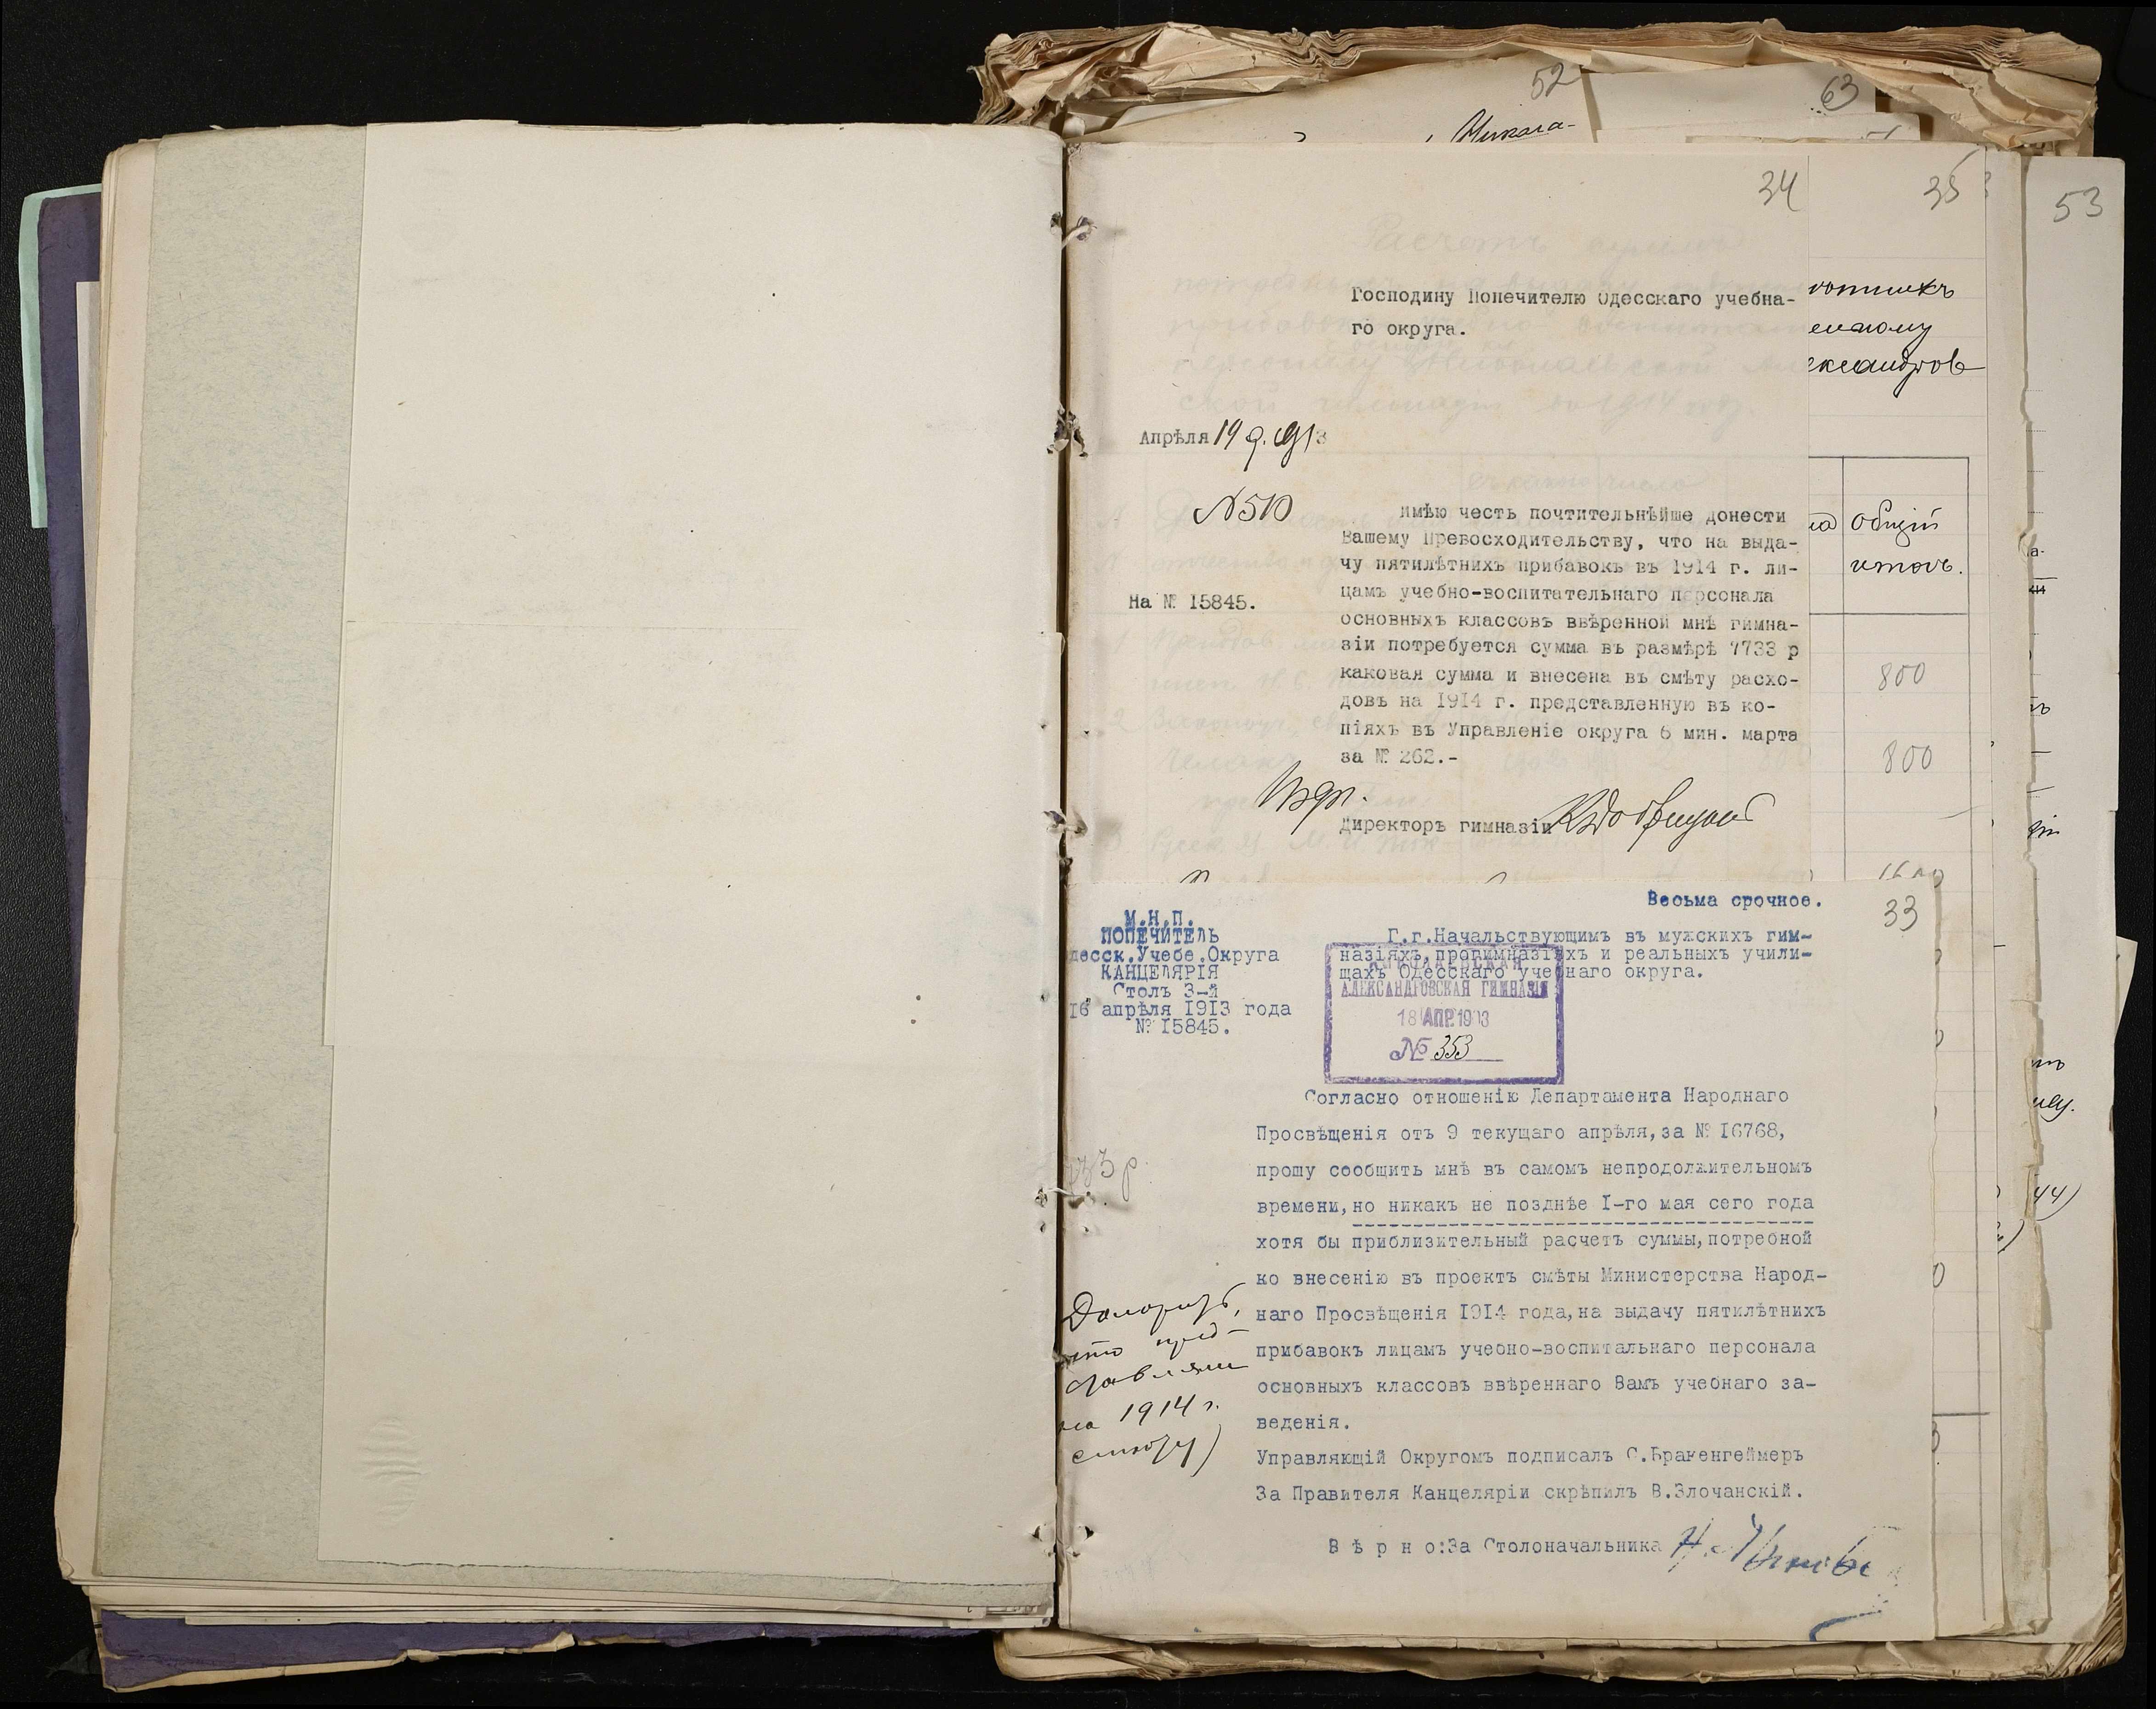 52
63
34
35
53
Господину Попечителю Одесскаго учебна-
го округа.
Апрѣля 19 д. 1913
№ 510
Имѣю честь почтительнѣйше донести
Вашему Превосходительству, что на выда-
чу пятилѣтнихъ прибавокъ въ 1914 г. ли-
цамъ учебно-воспитательнаго персонала
На № 15845.
основныхъ классовъ ввѣренной мнѣ гимна-
зіи потребуется сумма въ размѣрѣ 7733 р
каковая сумма и внесена въ смѣту расхо-
довъ на 1914 г. представленную въ ко-
піяхъ въ Управленіе округа 6 мин. марта
за № 262.-
Директоръ гимназіи
общій
итогъ.
800
800
Весьма срочное.
33
М.Н.П.
ПОПЕЧИТЕЛЬ
десск.Учебн.Округа
КАНЦЕЛЯРІЯ
Столъ 3-й
16 апрѣля 1913 года
№ 15845.
Г.г.Начальствующимъ въ мужскихъ гим-
назіяхъ,прогимназіяхъ и реальныхъ учили-
щахъ Одесскаго учебнаго округа.
АЛЕКСАНДРОВСКАЯ ГИМНАЗІЯ
18 АПР 1913
№ 353
Согласно отношенію Департамента Народнаго
Просвѣщенія отъ 9 текущаго апрѣля,за № 16768,
прошу сообщить мнѣ въ самомъ непродолжительномъ
времени,но никакъ не позднѣе 1-го мая сего года
хотя бы приблизительный расчетъ суммы,потребной
ко внесенію въ проектъ смѣты Министерства Народ-
наго Просвѣщенія 1914 года,на выдачу пятилѣтнихъ
прибавокъ лицамъ учебно-воспитальнаго персонала
основныхъ классовъ ввѣреннаго Вамъ учебнаго за-
веденія.
Управляющій Округомъ подписалъ С.Бракенгеймеръ
За Правителя Канцеляріи скрѣпилъ В.Злочанскій.
В ѣ р н о:За Столоначальника
33 р.
на 1914 г.
смѣту)